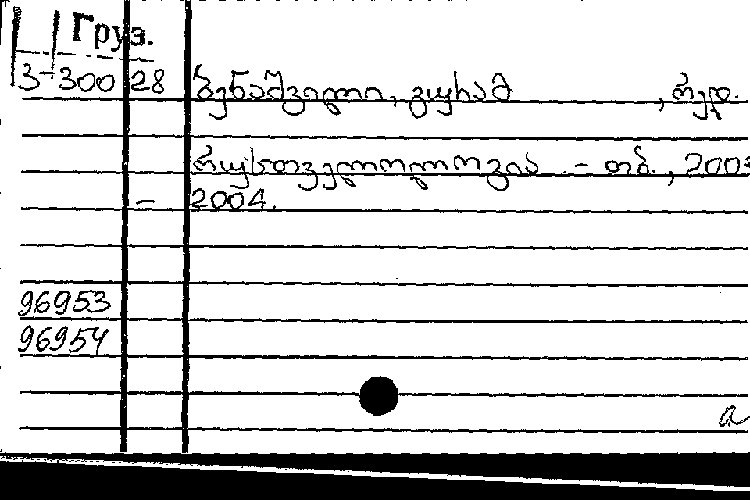 Груз.
3-300 28 ბენაშვილი, გურამ , რედ.
რუსთველოლოგია. – თბ., 2003
– 2004.
96953
96954
a